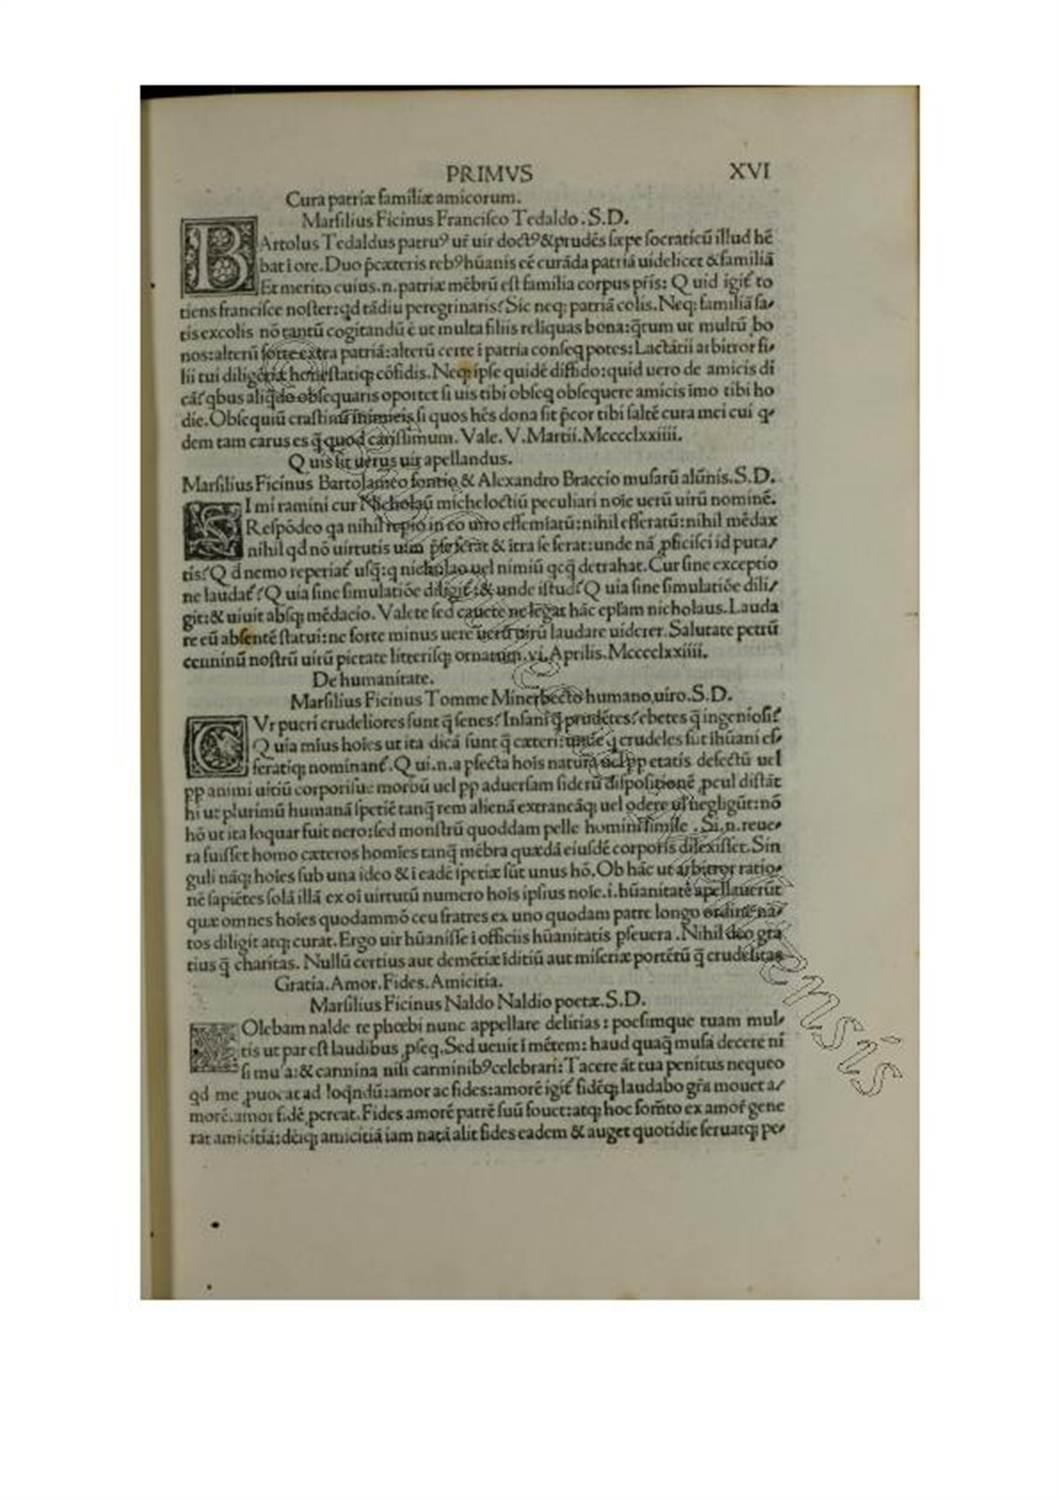 PRIMVS XVI
Cura patriæ familiæ amicorum.
Marsilius Ficinus Francisco Tedaldo. S.D.
BArtolus Tedaldus patruꝰ ur̃ uir doctꝰ & prudẽs sæpe socraticũ illud hẽ
bat ĩ ore. Duo p̃cæteris rebꝰ hũanis eẽ curãda patriã uidelicet & familiã
Et merito cuius .n. patriæ mẽbrũ est familia corpus p̃ris: Quid igit̃ to
tiens francisce noster: qd tãdiu peregrinaris? Sic neq; patriã colis. Neq; familiã sa/
tis excolis nõ tantũ cogitandũ ẽ ut multa filiis relĩquas bona: q̃tum ut multũ bo
nos: alterũ forte extra patriã: alterũ certe ĩ patria conseq potes: Lactãtii arbitror fi/
lii tui diligẽtiæ honestatiq; cõfidis. Neq; ipse quidẽ diffido: quid uero de amicis di
cã? qbus aliq̃do obsequaris oportet si uis tibi obseq obsequere amicis ĩmo tibi ho
die. Obsequiũ crastinũ inimicis si quos hẽs dona sit p̃cor tibi saltẽ cura mei cui q/
dem tam carus es q̃ quod carissimum. Vale. V. Martii. Mcccclxxiiii.
Quis sit uerus uir apellandus.
Marsilius Ficinus Bartolameo fontio & Alexandro Braccio musarũ alũnis. S.D.
SI mi ramini cur Nicholaũ micheloctiũ peculiari noĩe uerũ uirũ nominẽ.
Respõdeo qa nihil repio in eo uiro effemĩatũ: nihil efferatũ: nihil mẽdax
nihil qd nõ uirtutis uim p̃se ferat & ĩtra se ferat: unde nã p̱ficisci id puta/
tis? Q d nemo reperiat̃ usq̃: q nicholao uel nimiũ qcq̃ detrahat. Cur sine exceptio
ne laudat̃? Quia sine simulatiõe diligit̃: & unde istud? Quia sine simulatiõe dili/
git: & uiuit absq; mẽdacio. Valete sed cauete ne legat hãc ep̃lam nicholaus. Lauda
re eũ absentẽ statui: ne forte minus uere uerũ uirũ laudare uiderer. Salutate petrũ
cenninũ nostrũ uirũ pietate litterisq; ornatum. vi. Aprilis. Mcccclxxiiii.
De humanitate.
Marsilius Ficinus Tomme Minerbecto humano uiro. S.D.
CVr pueri crudeliores sunt q̃ senes? Insani q̃ prudẽtes? ebetes q̃ ingeniosi?
Quia mĩus hoĩes ut ita dicã sunt q̃ cæteri: unde q crudeles sũt ĩhũani ef/
feratiq; nominant̃. Qui .n. a p̱fecta hoĩs natura uel p̱p etatis defectũ uel
p̱p animi uitiũ corporisue morbũ uel p̱p aduersam siderũ dispositionẽ p̱cul distãt
hi ut plurimũ humanã spetiẽ tanq̃ rem alienã extraneãq; uel odere uł negligũt: nõ
hõ ut ita loquar fuit nero: sed monstrũ quoddam pelle homini simile. Si .n. reue/
ra fuisset homo cæteros homĩes tanq̃ mẽbra quædã eiusdẽ corporis dilexisset. Sin
guli nãq; hoĩes sub una idea & ĩ eadẽ spetiæ sũt unus hõ. Ob hãc ut arbitror ratio/
nẽ sapiẽtes solã illã ex oĩ uirtutũ numero hoĩs ipsius noĩe .i. hũanitatẽ apellauerũt
quæ omnes hoĩes quodammõ ceu fratres ex uno quodam patre longo ordine na/
tos diligit atq; curat. Ergo uir hũanisse ĩ officiis hũanitatis p̱seuera. Nihil deo gra
tius q̃ charitas. Nullũ certius aut demẽtiæ ĩditiũ aut miseriæ portẽtũ q̃ crudelitas
Gratia. Amor. Fides. Amicitia.
Marsilius Ficinus Naldo Naldio poetæ. S.D.
Olebam nalde te phœbi nunc appellare delitias: poesimque tuam mul/
tis ut par est laudibus p̱seq. Sed uenit ĩ mẽtem: haud quaq̃ musã decere ni
si musa: & carmina nisi carminibꝰ celebrari: Tacere ãt tua penitus nequeo
qd me p̱uocat ad loqndũ: amor ac fides: amorẽ igit̃ fidẽq; laudabo gr̃a mouet a/
morẽ. amor fidẽ pereat. Fides amorẽ patrẽ suũ fouet: atq; hoc form̃to ex amor̃ gene
rat amicitiã: dẽiq; amicitiã iam natã alit fides eadem & auget quotidie seruatq; pe/
ensis